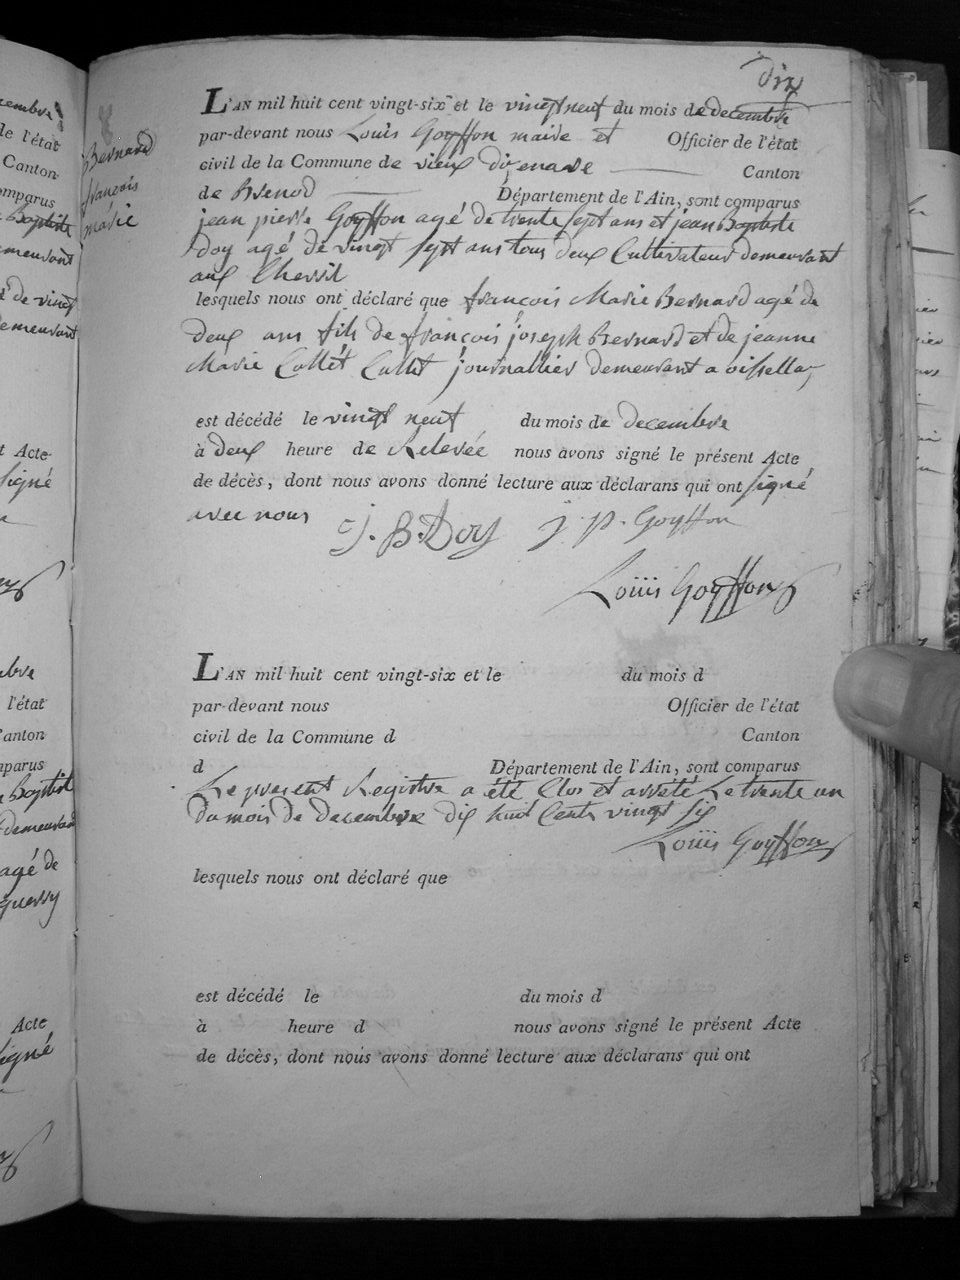 dix
L'AN mil huit cent vingt-six et le vingt neuf du mois de decembre
par-devant nous Louis Goyffon maire et Officier de l'état
civil de la Commune de vieux d'izenave Canton
de Brenod Département de l'Ain, sont comparus
jean pierre Goyffon agé de trente sept ans et jean Baptiste
Doy agé de vingt sept ans tous deux Cultivateur demeurant
aux
lesquels nous ont déclaré que françois Marie Bernard agé de
deux ans fils de françois joseph Bernard et de jeanne
Marie Collet Collet journallier demeurant a
est décédé le vingt neuf du mois de decembre
à deux heure de Relevée nous avons signé le présent Acte
de décès, dont nous avons donné lecture aux déclarans qui ont signé
avec nous J. B. Doy j. p. Goyffon
Louis Goyffon
Bernard
françois
marie
L'AN mil huit cent vingt-six et le du mois d
par-devant nous Officier de l'état
civil de la Commune d Canton
d Département de l'Ain, sont comparus
Le present Registre a été Clos et arrété Le trente un
du mois de decembre dix huit Cents vingt six
Louis Goyffon
lesquels nous ont déclaré que
est décédé le du mois d
à heure d nous avons signé le présent Acte
de décès, dont nous avons donné lecture aux déclarans qui ont